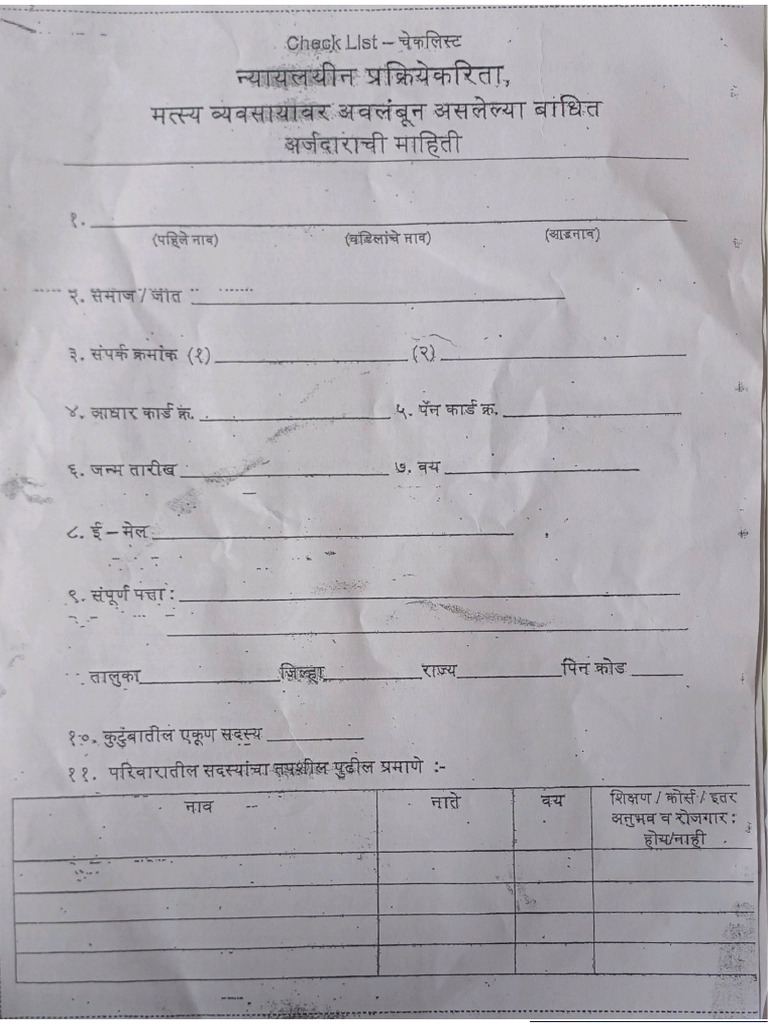 Check List – चेकलिस्ट
न्यायलयीन प्रक्रियेकरिता,
मत्स्य व्यवसायावर अवलंबून असलेल्या बाधित
अर्जदाराची माहिती
१.
(पहिले नाव) (वडिलांचे नाव) (आडनाव)
२. समाज / जात
३. संपर्क क्रमांक (१) (२)
४. आधार कार्ड क्रं. ५. पॅन कार्ड क्र.
६. जन्म तारीख ७. वय
८. ई – मेल
९. संपूर्ण पत्ता :
तालुका जिल्हा राज्य पिन कोड
१०. कुटुंबातील एकूण सदस्य
११. परिवारातील सदस्यांचा तपशील पुढील प्रमाणे :-
नाव नाते वय शिक्षण / कोर्स / इतर
अनुभव व रोजगार :
होय/नाही